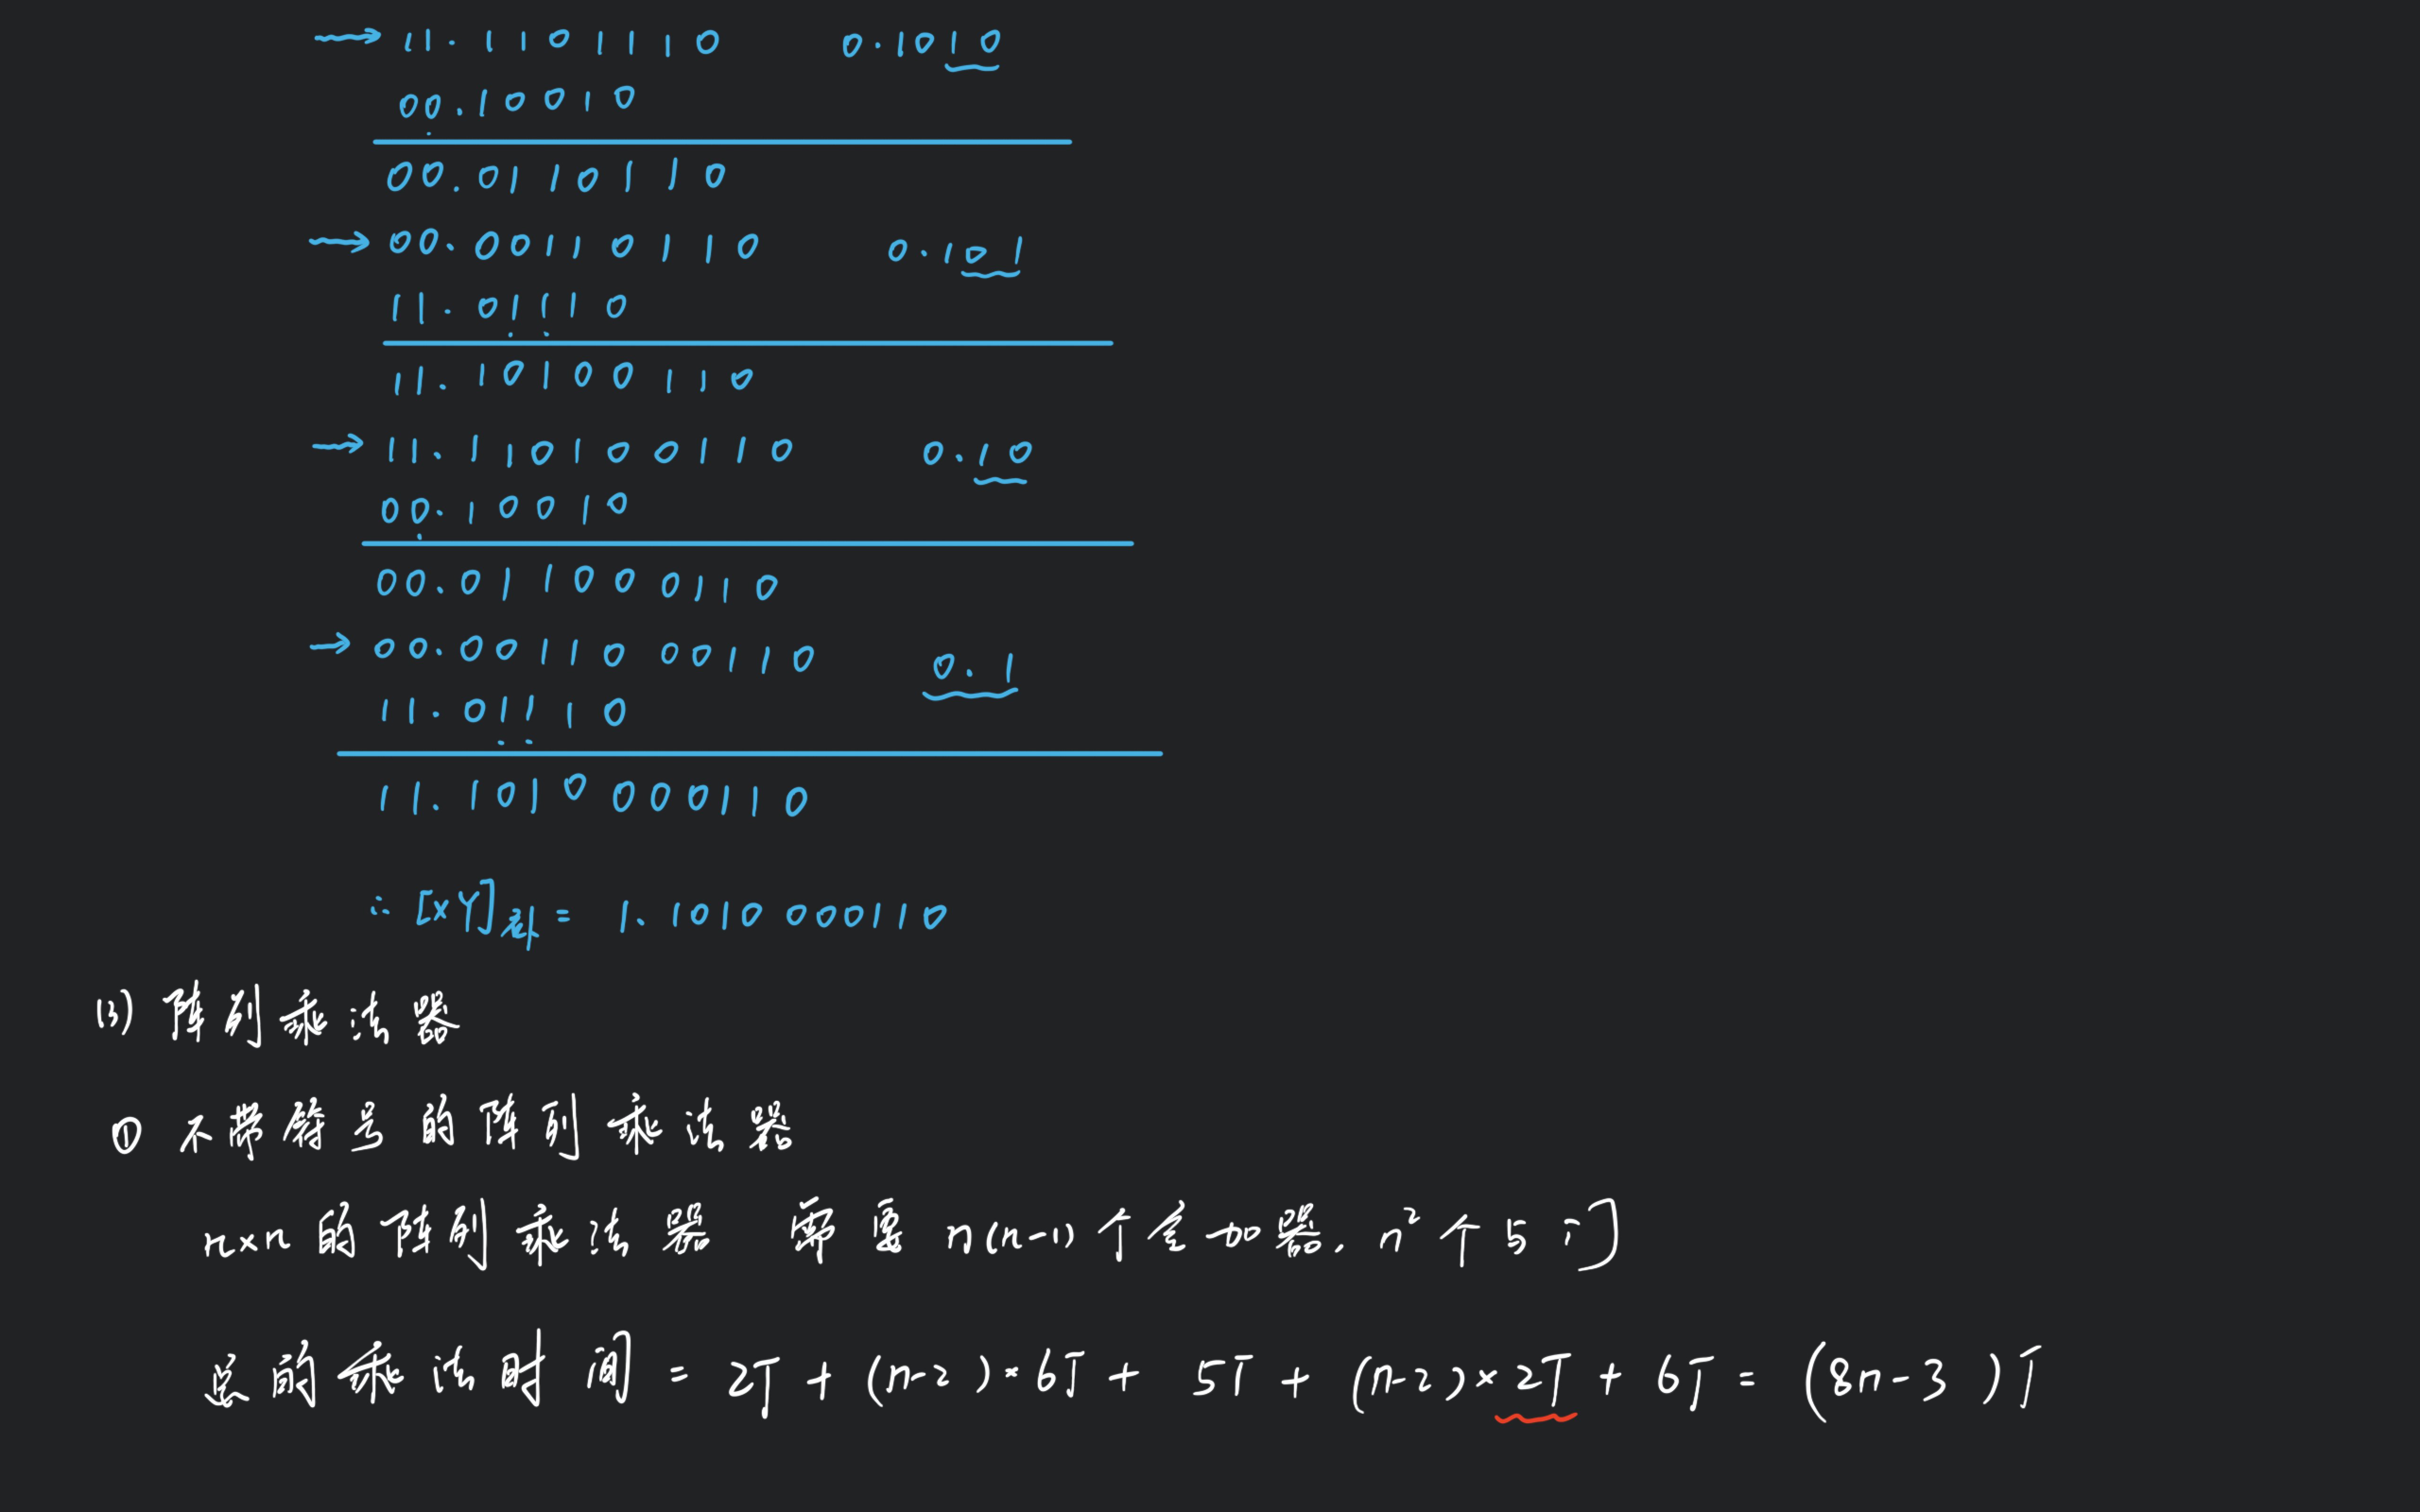 → 11.1101110 0.1010
00.10010
00.0110110
→ 00.00110110 0.101
11.01110
11.10100110
→ 11.110100110 0.10
00.10010
00.011000110
→ 00.0011000110 0.1
11.01110
11.1010000110
∴ [XY]补 = 1.1010000110
(3) 阵列乘法器
① 不带符号的阵列乘法器
n×n的阵列乘法器 需要 n(n-1)个全加器. n²个与门
总的乘法时间 = 2T + (n-2)×6T + 5T + (n-2)×2T + 6T = (8n-3)T